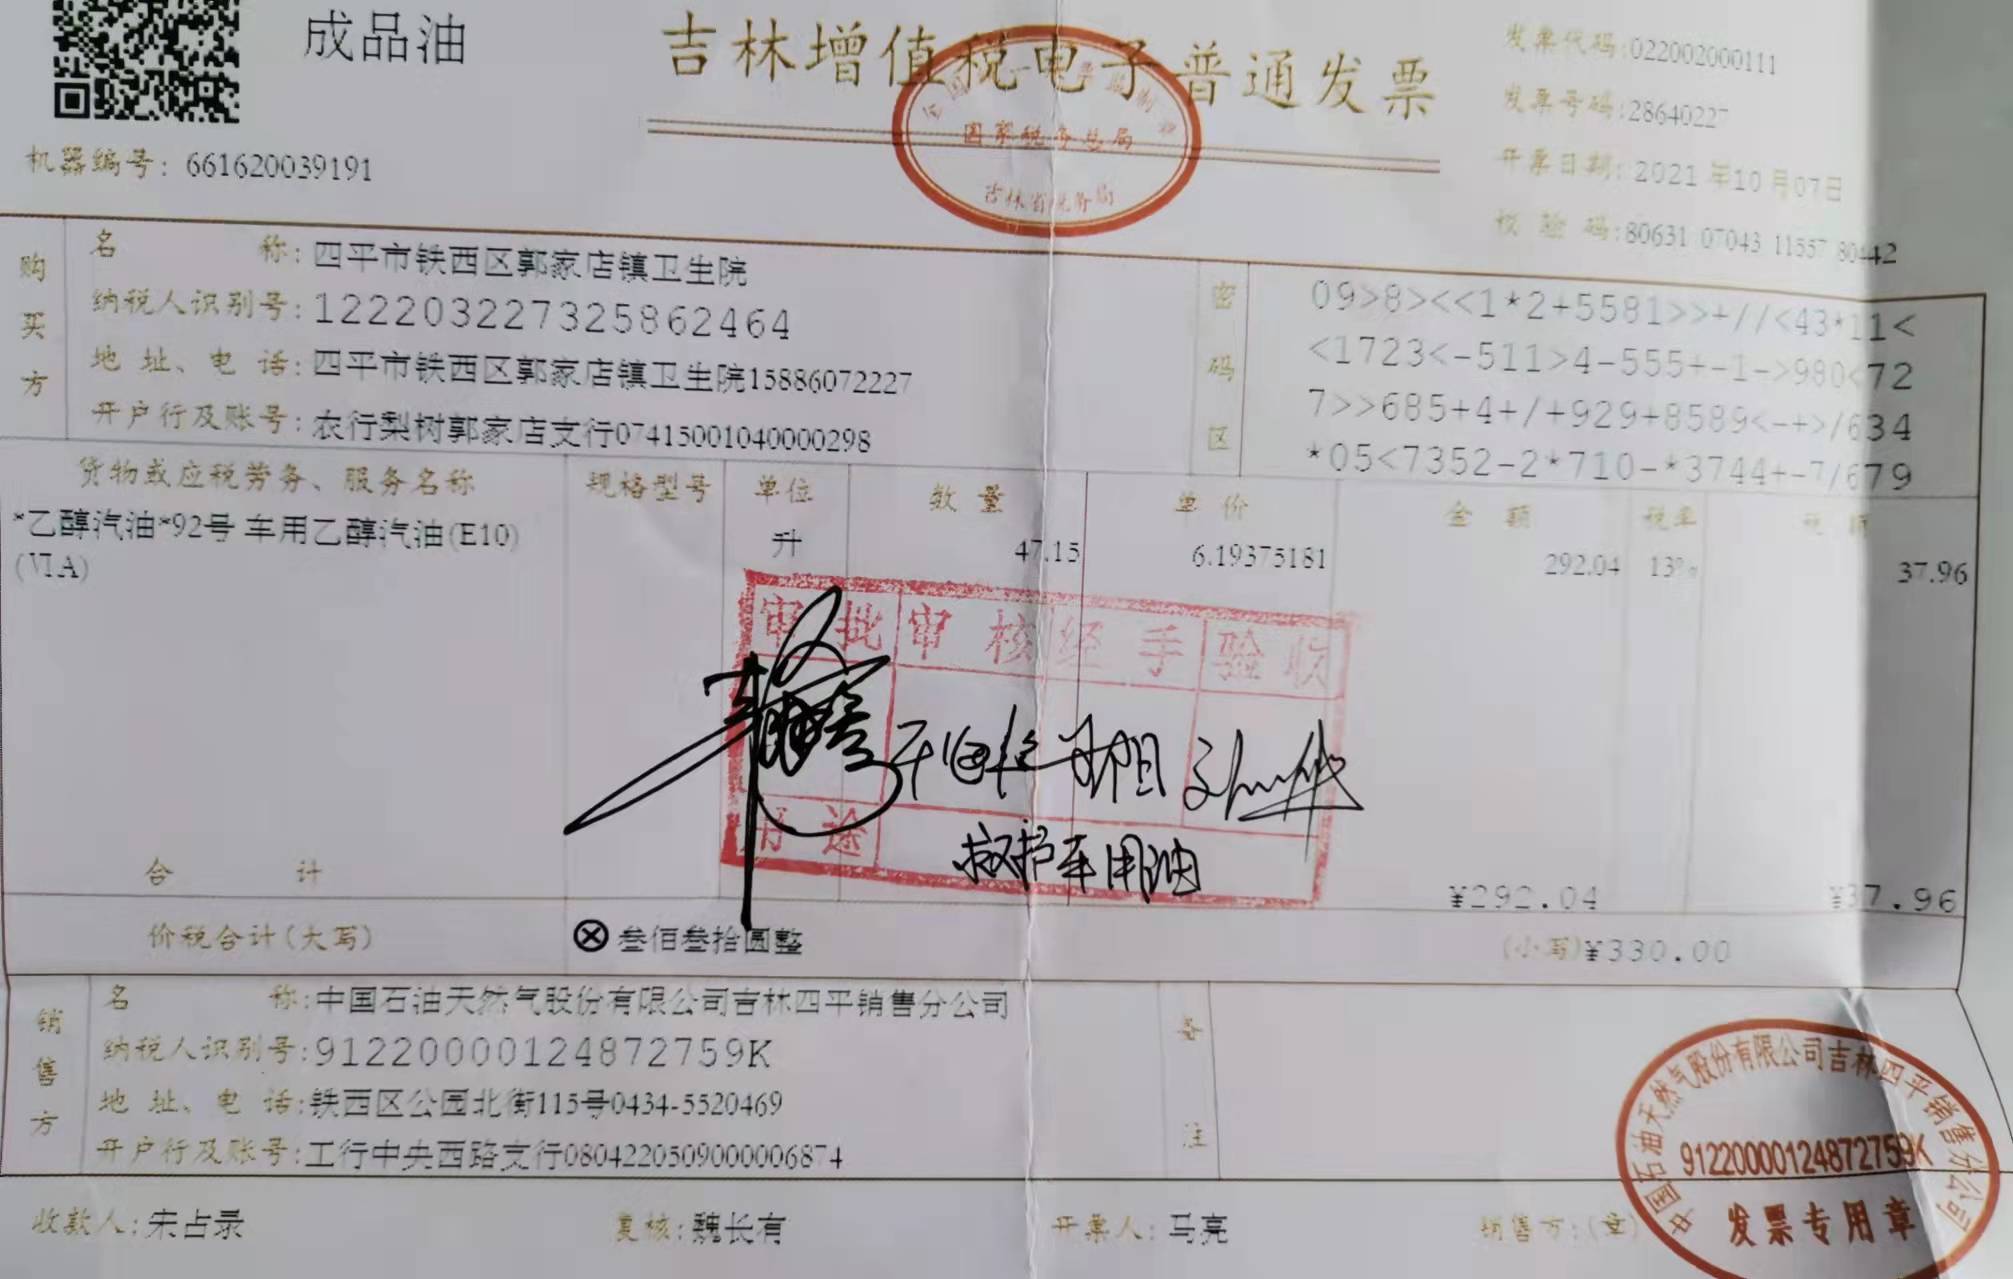 成品油
吉林增值税电子普通发票
国家税务总局
吉林省税务局
发票代码:022002000111
发票号码:28640227
开票日期:2021年10月07日
校验码:80631 07043 11557 80442
机器编号:661620039191
购买方
名称:四平市铁西区郭家店镇卫生院
纳税人识别号:122203227325862464
地址、电话:四平市铁西区郭家店镇卫生院15886072227
开户行及账号:农行梨树郭家店支行07415001040000298
密码区
09>8><<1*2+5581>>+//<43*11<
<1723<-511>4-555+-1->980<72
7>>685+4+/+929+8589<-+>/634
*05<7352-2*710-*3744+-7/679
货物或应税劳务、服务名称 规格型号 单位 数量 单价 金额 税率 税额
*乙醇汽油*92号 车用乙醇汽油(E10) 升 47.15 6.19375181 292.04 13% 37.96
(VIA)
审批 审核 经手 验收
用途 救护车用油
合计 ¥292.04 ¥37.96
价税合计(大写) ⊗叁佰叁拾圆整 (小写)¥330.00
销售方
名称:中国石油天然气股份有限公司吉林四平销售分公司
纳税人识别号:91220000124872759K
地址、电话:铁西区公园北街115号0434-5520469
开户行及账号:工行中央西路支行0804220509000006874
备注
收款人:宋占录 复核:魏长有 开票人:马亮 销售方:(章)
中国石油天然气股份有限公司吉林四平销售分公司
91220000124872759K
发票专用章